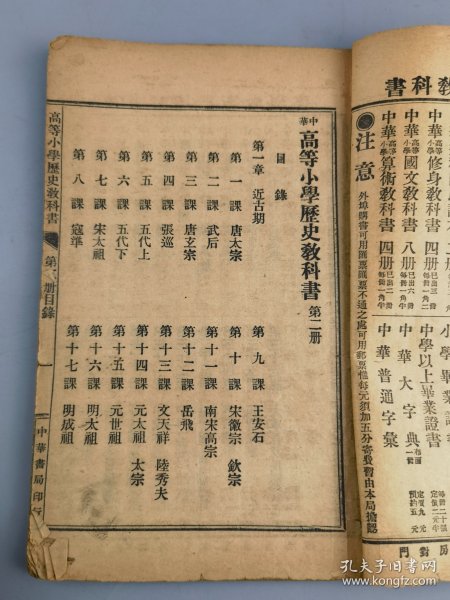 教科書
中華高等小學修身教科書 四册
中華高等小學國文教科書 八册
中華高等小學算術教科書 四册
注意
外埠購書可用匯票匯票不通之處可用郵票惟每元須加五分寄費暫由本局擔認
中學以上畢業證書
中華大字典
中華普通字彙
對門
中華高等小學歷史教科書 第二册
目錄
第一章 近古期
第一課 唐太宗
第二課 武后
第三課 唐玄宗
第四課 張巡
第五課 五代上
第六課 五代下
第七課 宋太祖
第八課 寇準
第九課 王安石
第十課 宋徽宗 欽宗
第十一課 南宋高宗
第十二課 岳飛
第十三課 文天祥 陸秀夫
第十四課 元太祖 太宗
第十五課 元世祖
第十六課 明太祖
第十七課 明成祖
高等小學歷史教科書
第二册目錄
一
中華書局印行
孔夫子旧书网
www.kongfz.com